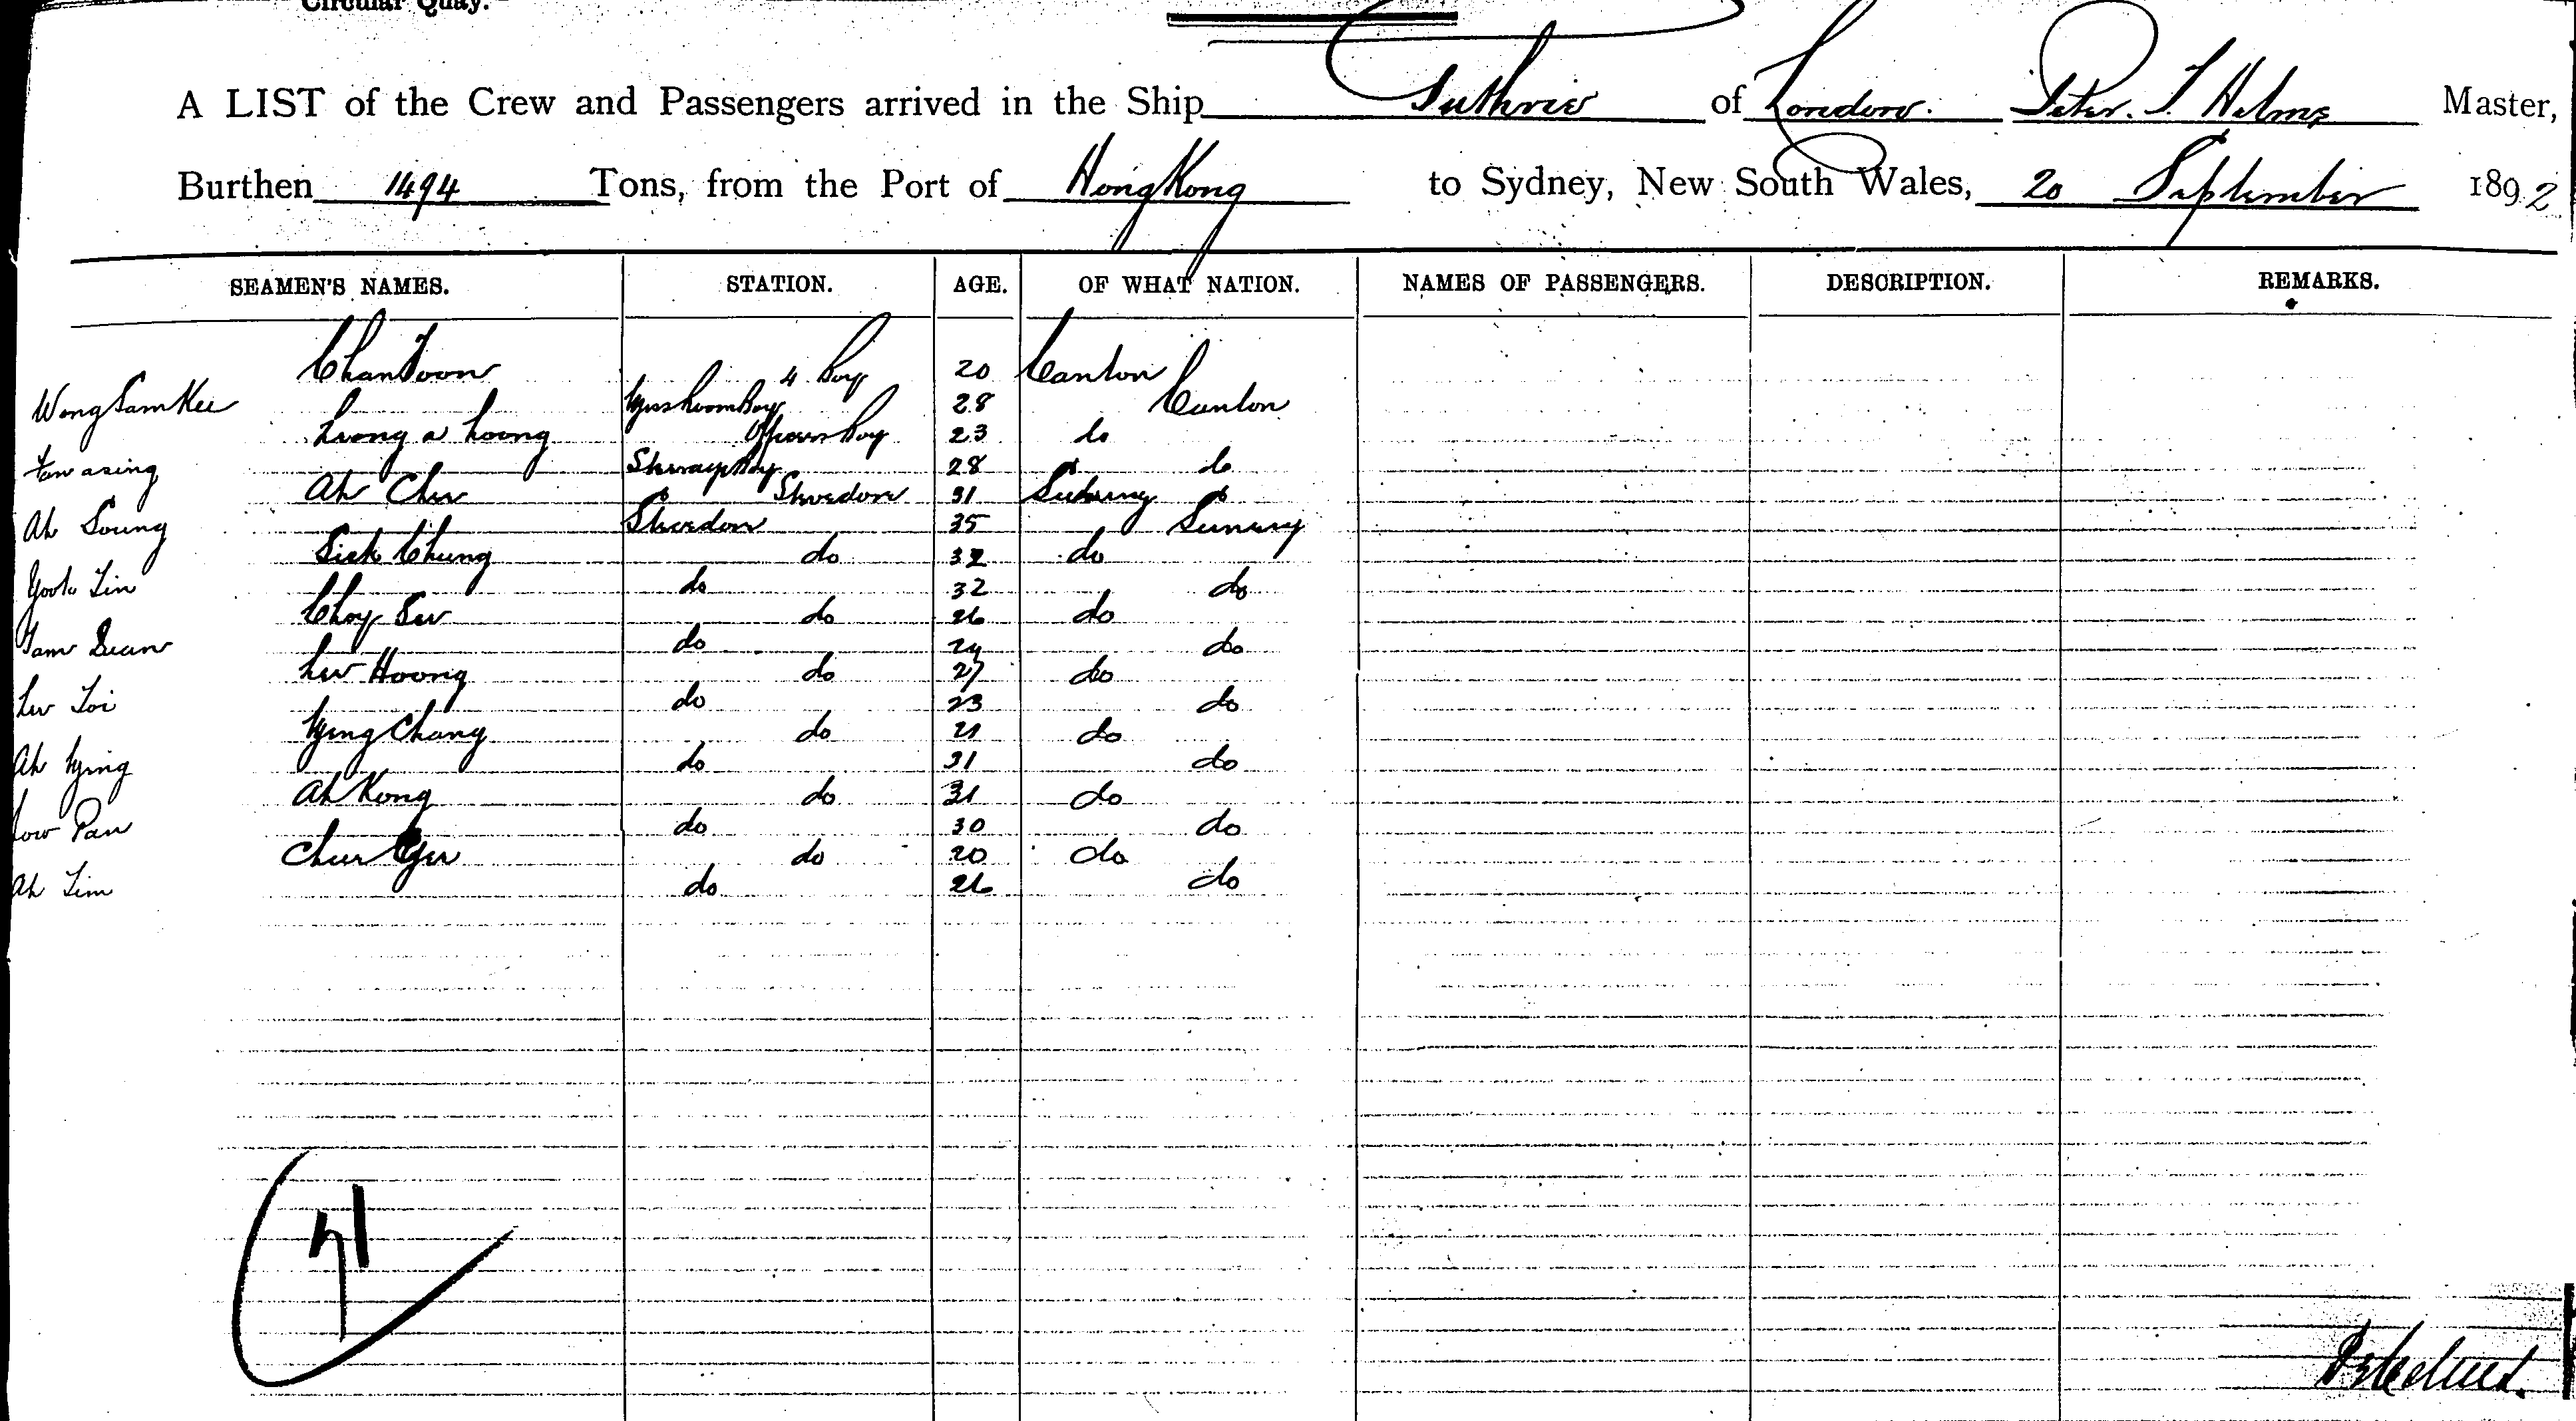 Circular Quay.
A LIST of the Crew and Passengers arrived in the Ship Guthrie of London. Peter. T. Helms Master,
Burthen 1494 Tons, from the Port of Hong Kong to Sydney, New South Wales, 20 September 1892
SEAMEN'S NAMES. STATION. AGE. OF WHAT NATION. NAMES OF PASSENGERS. DESCRIPTION. REMARKS.
Chan Toon 4 Boy 20 Canton
Wong Sam Kee Boy 28 Canton
Leong a Loong Officers Boy 23 do
28 do
Ah Chu 31
Ah Soung 35
Sick Chung do 32 do
Yook Lin do 32 do
Choy See do 26 do
do 24 do
Lee Hoong do 27 do
Lee Loi do 23 do
Chang do 21 do
Ah do 31 do
Ah Kong do 31 do
Pan do 30 do
do 20 do
Ah Lim do 26 do
71